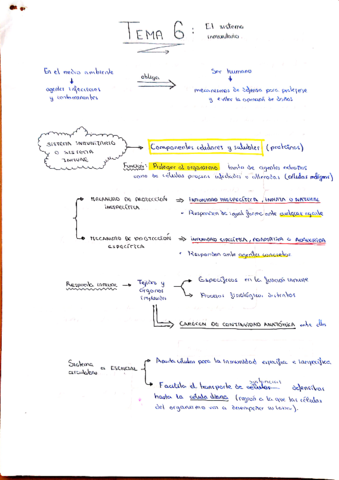 TEMA 6: El sistema
inmunitario
En el medio ambiente
agentes infecciosos
y contaminantes
obliga
Ser humano
mecanismos de defensa para protegerse
y evitar la aparición de daños
SISTEMA INMUNITARIO
O SISTEMA
INMUNE
Componentes celulares y solubles (proteínas)
Función: Proteger al organismo tanto de agentes extraños
como de células propias infectadas o alteradas (células malignas)
MECANISMO DE PROTECCIÓN
INESPECÍFICA
INMUNIDAD INESPECÍFICA, INNATA O NATURAL
Responden de igual forma ante cualquier agente
MECANISMO DE PROTECCIÓN
ESPECÍFICA
INMUNIDAD ESPECÍFICA, ADAPTATIVA O ADQUIRIDA
Responden ante agentes concretos
Respuesta inmune
Tejidos y
órganos
implicados
Específicos en la función inmune
Procesos fisiológicos distintos
CARECEN DE CONTINUIDAD ANATÓMICA entre ellos
Sistema
circulatorio
es ESENCIAL
Aporta células para la inmunidad específica e inespecífica
Facilita el transporte de sustancias defensivas
hasta la célula diana (región a la que las células
del organismo van a desempeñar su tarea).